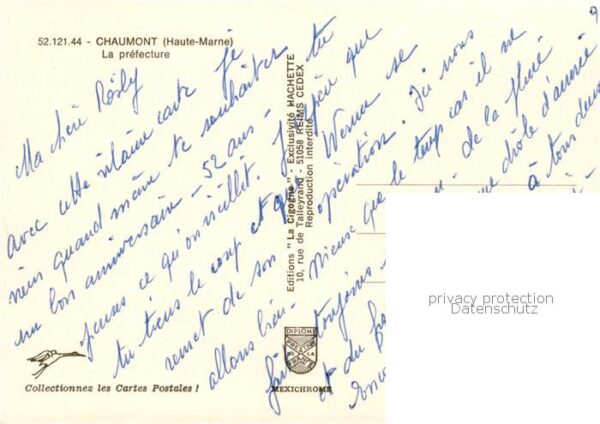 52.121.44 - CHAUMONT (Haute-Marne)
La préfecture
Ma chère Rosly
avec cette vilaine carte je
viens quand même te souhaiter
un bon anniversaire - 52 ans - tu
penses ce qu'on vieillit. J'espère que
tu tiens le coup et que Werner se
remet de son opération. Ici nous
allons bien - Mieux que le temps car il ne
fait toujours de la pluie
et du drôle d'année
à tous deux
Editions "La Cigogne" - Exclusivité HACHETTE
10, rue de Talleyrand - 51058 REIMS CEDEX
Reproduction interdite
privacy protection
Datenschutz
DIPLOME
PRESTIGE
DE LA
FRANCE
MEXICHROME
Collectionnez les Cartes Postales !